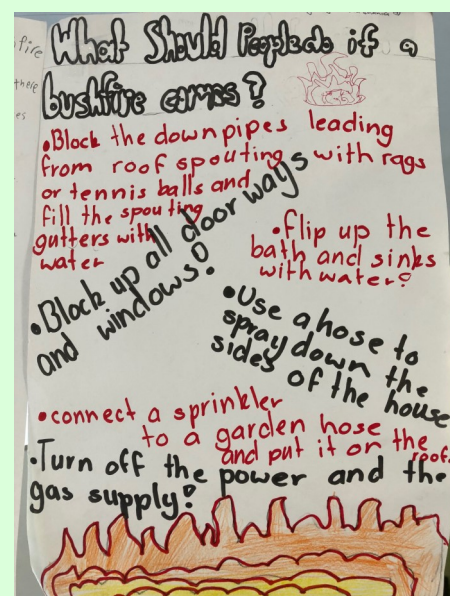 fire
there
es
What Should People do if a
bushfire comes?
•Block the down pipes leading
from roof spouting with rags
or tennis balls and
fill the spouting
gutters with
water
•Block up all door ways
and windows!
•flip up the
bath and sinks
with water!
•Use a hose to
spray down the
sides of the house
•connect a sprinkler
to a garden hose
and put it on the
roof.
•Turn off the power and the
gas supply!